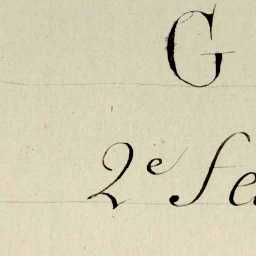 G
2e fe